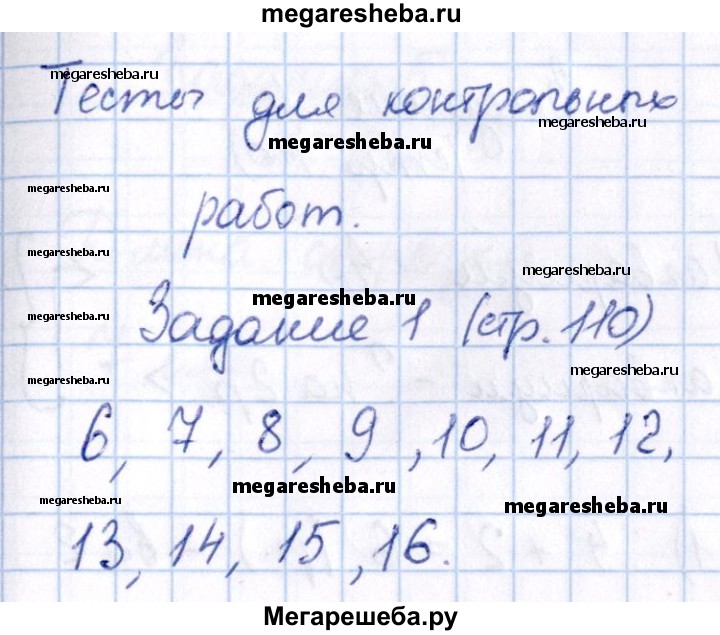 megaresheba.ru
megaresheba.ru
Тесты для контрольных
megaresheba.ru
megaresheba.ru
megaresheba.ru
работ.
megaresheba.ru
megaresheba.ru
megaresheba.ru
megaresheba.ru
Задание 1 (стр. 110)
megaresheba.ru
megaresheba.ru
6, 7, 8, 9, 10, 11, 12,
megaresheba.ru
megaresheba.ru
megaresheba.ru
13, 14, 15, 16.
Мегарешеба.ру